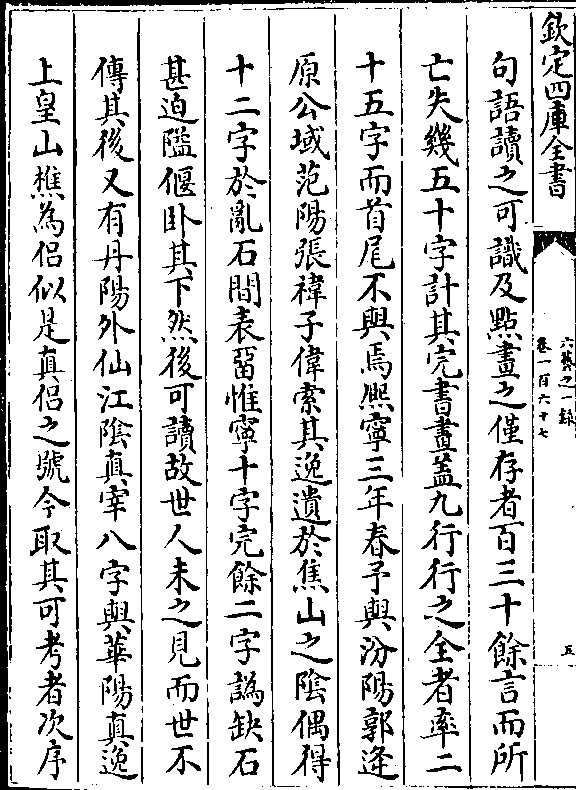 欽定四庫全書
六藝之一錄
卷一百六十七
五
句語讀之可識及點畫之僅存者百三十餘言而所
亡失幾五十字計其完書盖九行行之全者率二
十五字而首尾不與焉熈寧三年春予與汾陽郭逄
原公域范陽張禕子偉索其逸遺於焦山之隂偶得
十二字於亂石間表畱惟寧十字完餘二字譌缺石
甚迫隘偃卧其下然後可讀故世人未之見而世不
傳其後又有丹陽外仙江隂真宰八字與華陽真逸
上皇山樵為侣似是真侣之號今取其可考者次序